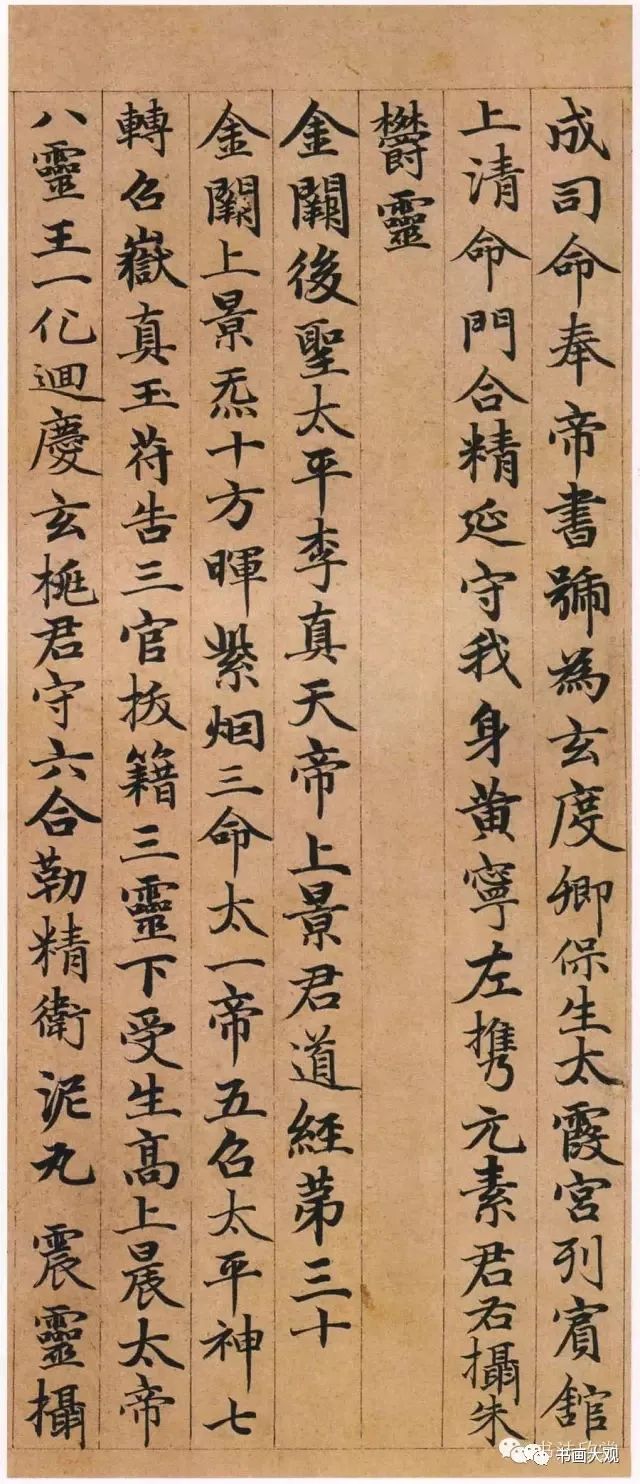 成司命奉帝書號為玄度卿保生太霞宮列賓舘
上清命門合精延守我身黃寧左携元素君右攝朱
欝靈
金闕後聖太平李真天帝上景君道經苐三十
金闕上景炁十方暉紫烟三命太一帝五召太平神七
轉召嶽真玉苻告三官拔籍三靈下受生高上晨太帝
八靈王一化迴慶玄桃君守六合勒精衛泥丸 震靈攝
书画大观